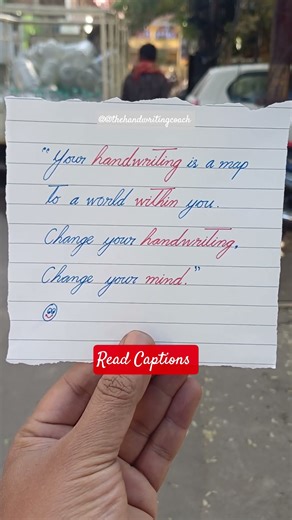 @@thehandwritingcoach
"Your handwriting is a map
To a world within you.
Change your handwriting.
Change your mind."
Read Captions